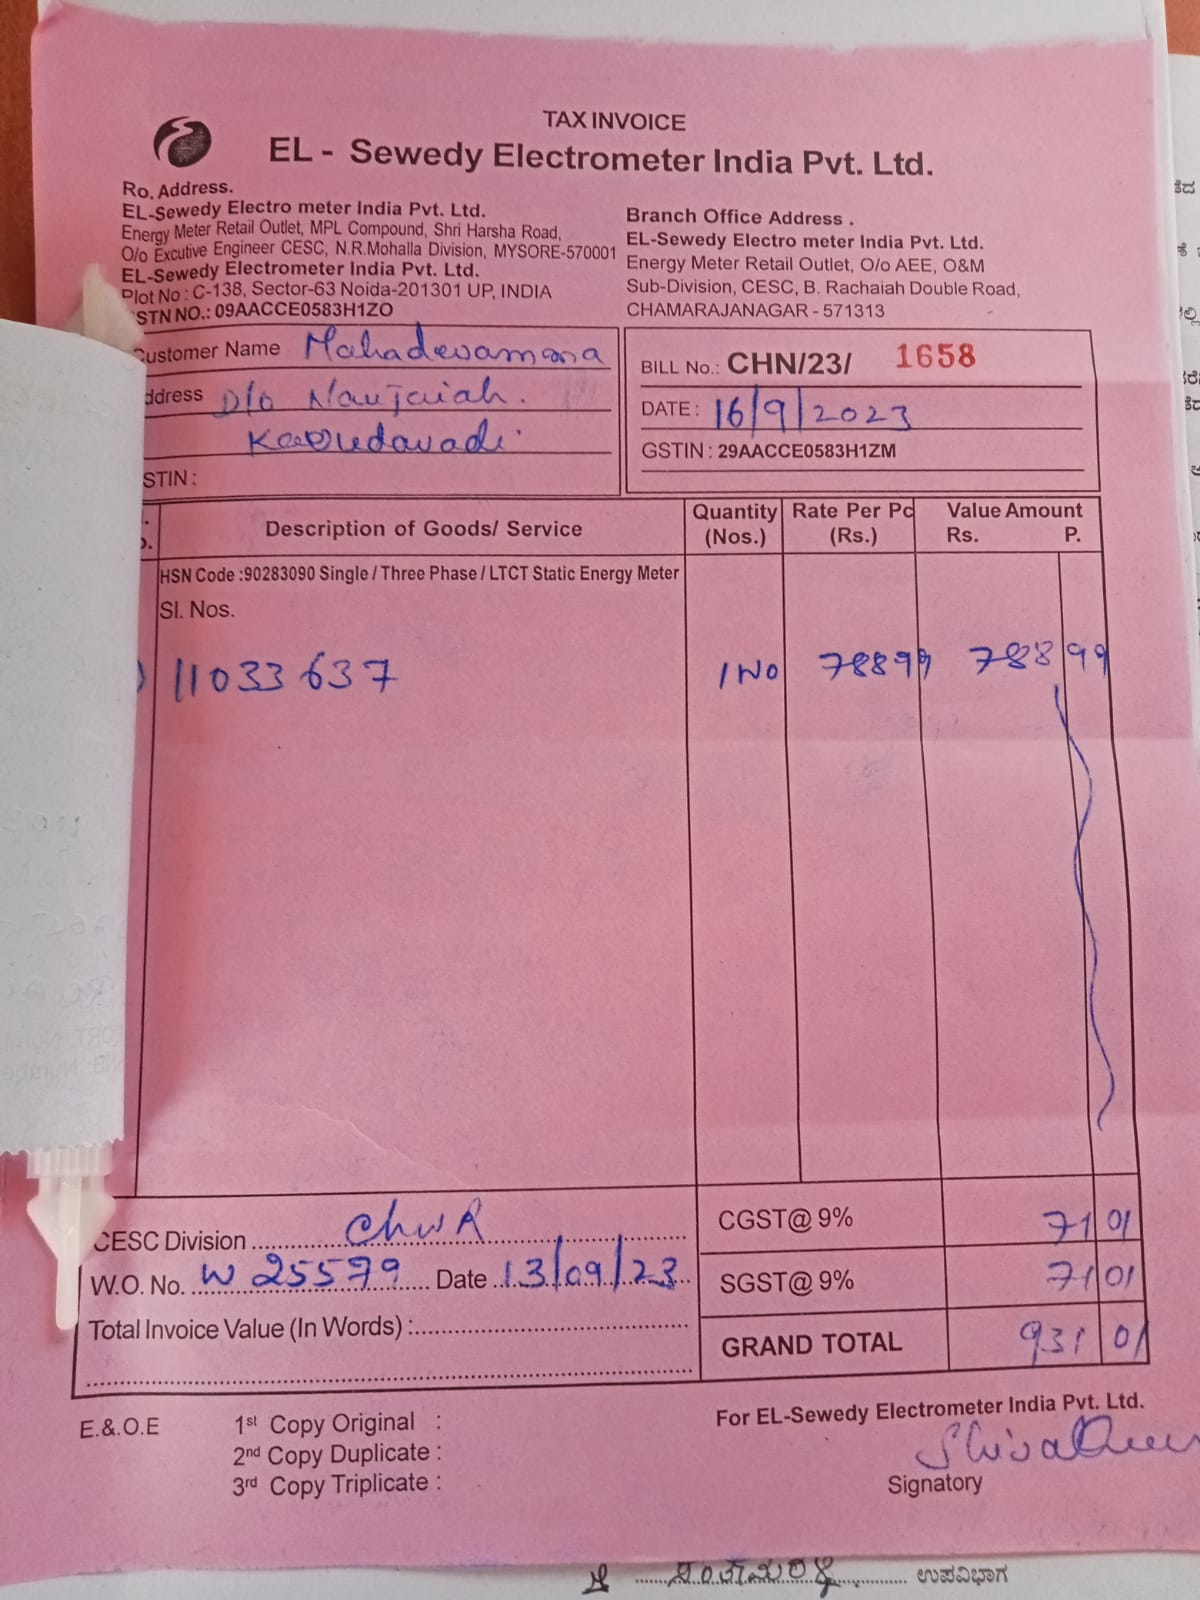 TAX INVOICE
EL - Sewedy Electrometer India Pvt. Ltd.
Ro. Address.
EL-Sewedy Electro meter India Pvt. Ltd.
Energy Meter Retail Outlet, MPL Compound, Shri Harsha Road,
O/o Excutive Engineer CESC, N.R.Mohalla Division, MYSORE-570001
EL-Sewedy Electrometer India Pvt. Ltd.
Plot No : C-138, Sector-63 Noida-201301 UP, INDIA
STN NO.: 09AACCE0583H1ZO
Branch Office Address .
EL-Sewedy Electro meter India Pvt. Ltd.
Energy Meter Retail Outlet, O/o AEE, O&M
Sub-Division, CESC, B. Rachaiah Double Road,
CHAMARAJANAGAR - 571313
ustomer Name Mahadevamma
ddress D/o Nanjaiah.
STIN :
BILL No.: CHN/23/ 1658
DATE : 16/9/2023
GSTIN : 29AACCE0583H1ZM
Description of Goods/ Service Quantity (Nos.) Rate Per Pc (Rs.) Value Amount Rs. P.
HSN Code :90283090 Single / Three Phase / LTCT Static Energy Meter
Sl. Nos.
) 11033637 1 No 78899 788 99
CESC Division ChNR
W.O. No. W 25579 Date 13/09/23
Total Invoice Value (In Words) :
CGST@ 9% 71 01
SGST@ 9% 71 01
GRAND TOTAL 931 01
E.&.O.E
1st Copy Original :
2nd Copy Duplicate :
3rd Copy Triplicate :
For EL-Sewedy Electrometer India Pvt. Ltd.
Signatory
ಉಪವಿಭಾಗ